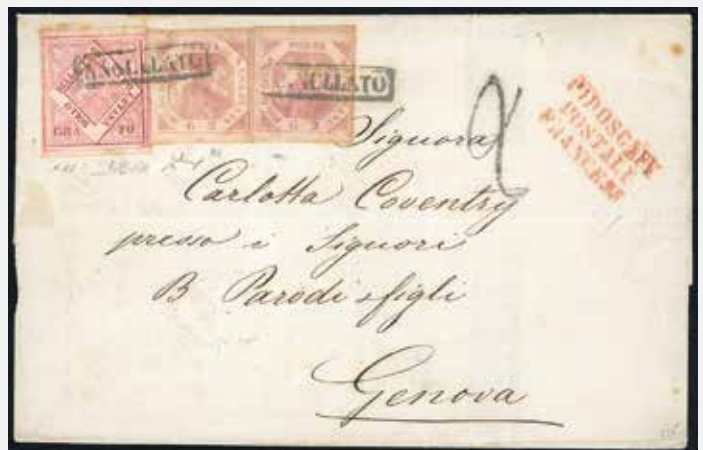 ANNULLATO
ANNULLATO
GRA 10
G 2
G 2
2
PIROSCAFI
POSTALI
FRANCESI
Signora
Carlotta Coventry
presso i Signori
B Parodi e figli
Genova